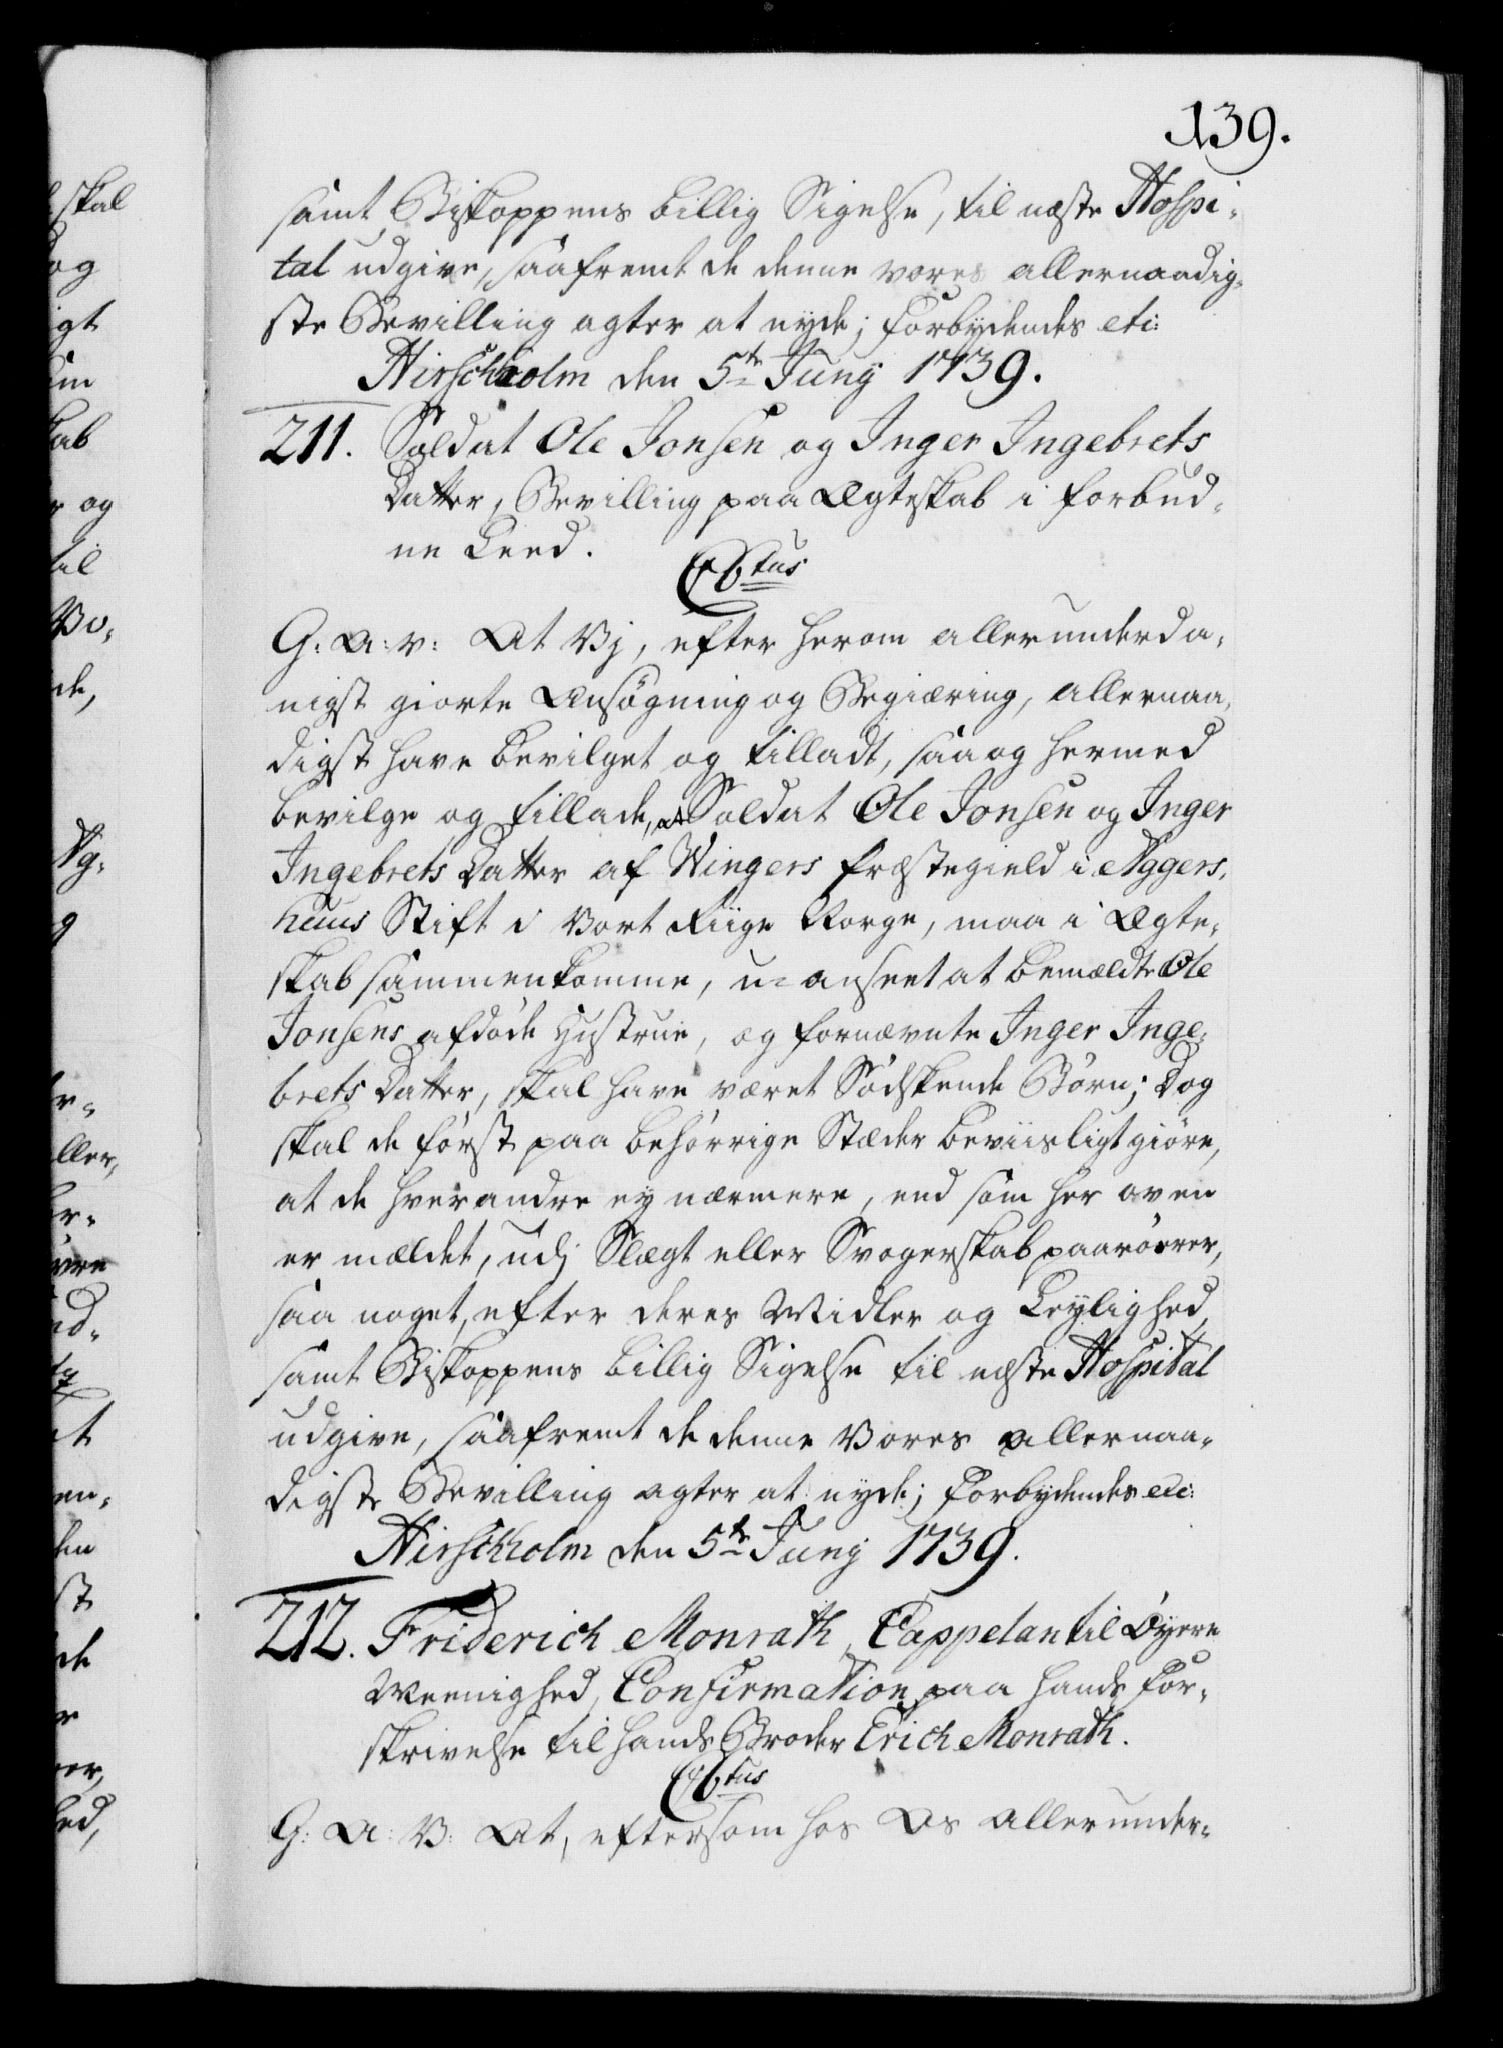 139.
samt Biskoppens billig Sigelse, til næste Hospi-
tal udgive, saafremt de denne vores allernaadig-
ste Bevilling agter at nyde; forbydendes etc:
Hirschholm den 5te Junij 1739.
211. Soldat Ole Jonsen og Inger Ingebrets
Datter, Bevilling paa Ægteskab i forbud-
ne Leed.
C 6tus
G: A: V: At Vj, efter herom allerunderda-
nigst giorte Ansøgning og Begiæring, allernaa-
digst have bevilget og tilladt, saa og hermed
bevilge og tillade, at Soldat Ole Jonsen og Inger
Ingebrets Datter af Wingers Præstegield i Aggers-
huus Stift i Vort Riige Norge, maa i Ægte-
skab sammenkomme, u-anseet at bemældte Ole
Jonsens afdøde Hustrue, og fornævnte Inger Inge-
brets Datter, skal have været Sødskende Børn; Dog
skal de først paa behørrige Stæder beviisligt giøre,
at de hverandre ey nærmere, end som her oven
er mældet, udj Slægt eller Svogerskab paarører,
saa noget, efter deres Midler og Leylighed,
samt Biskoppens billig Sigelse til næste Hospital
udgive, saafremt de denne Vores allernaa-
digste Bevilling agter at nyde; forbydendes etc:
Hirschholm den 5te Junij 1739.
212. Friderich Monrath, Cappelan til Øyere
Meenighed, Confirmation paa hands For-
skrivelse til hands Broder Erich Monrath.
C 6tus
G: A: V: At, eftersom hos Os allerunder-
skal
og
til
de,
og